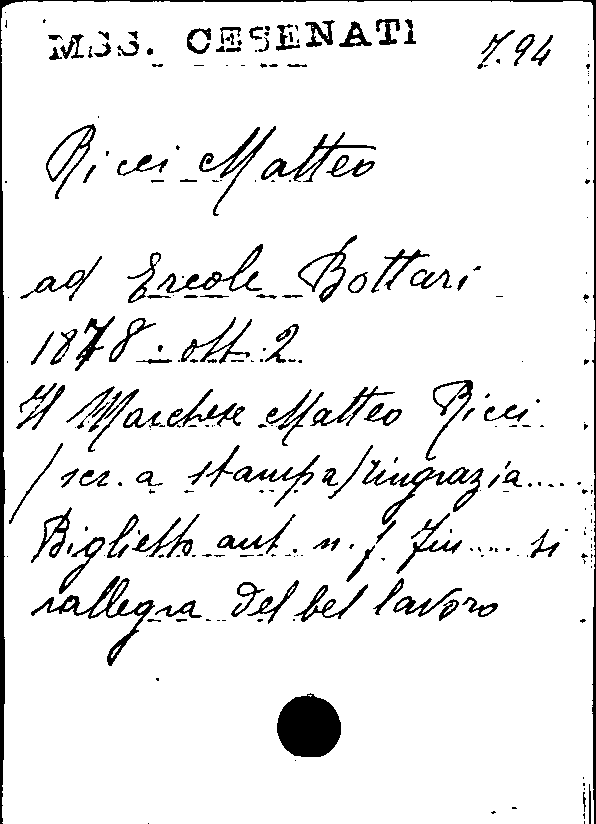 MSS. CESENATI 7.94
Ricci Matteo
ad Ercole Bottari
1878 . ott. 2
Il Marchese Matteo Ricci
/scr. a stampa/ringrazia.....
Biglietto aut. n. f. Fin.... si
rallegra del bel lavoro